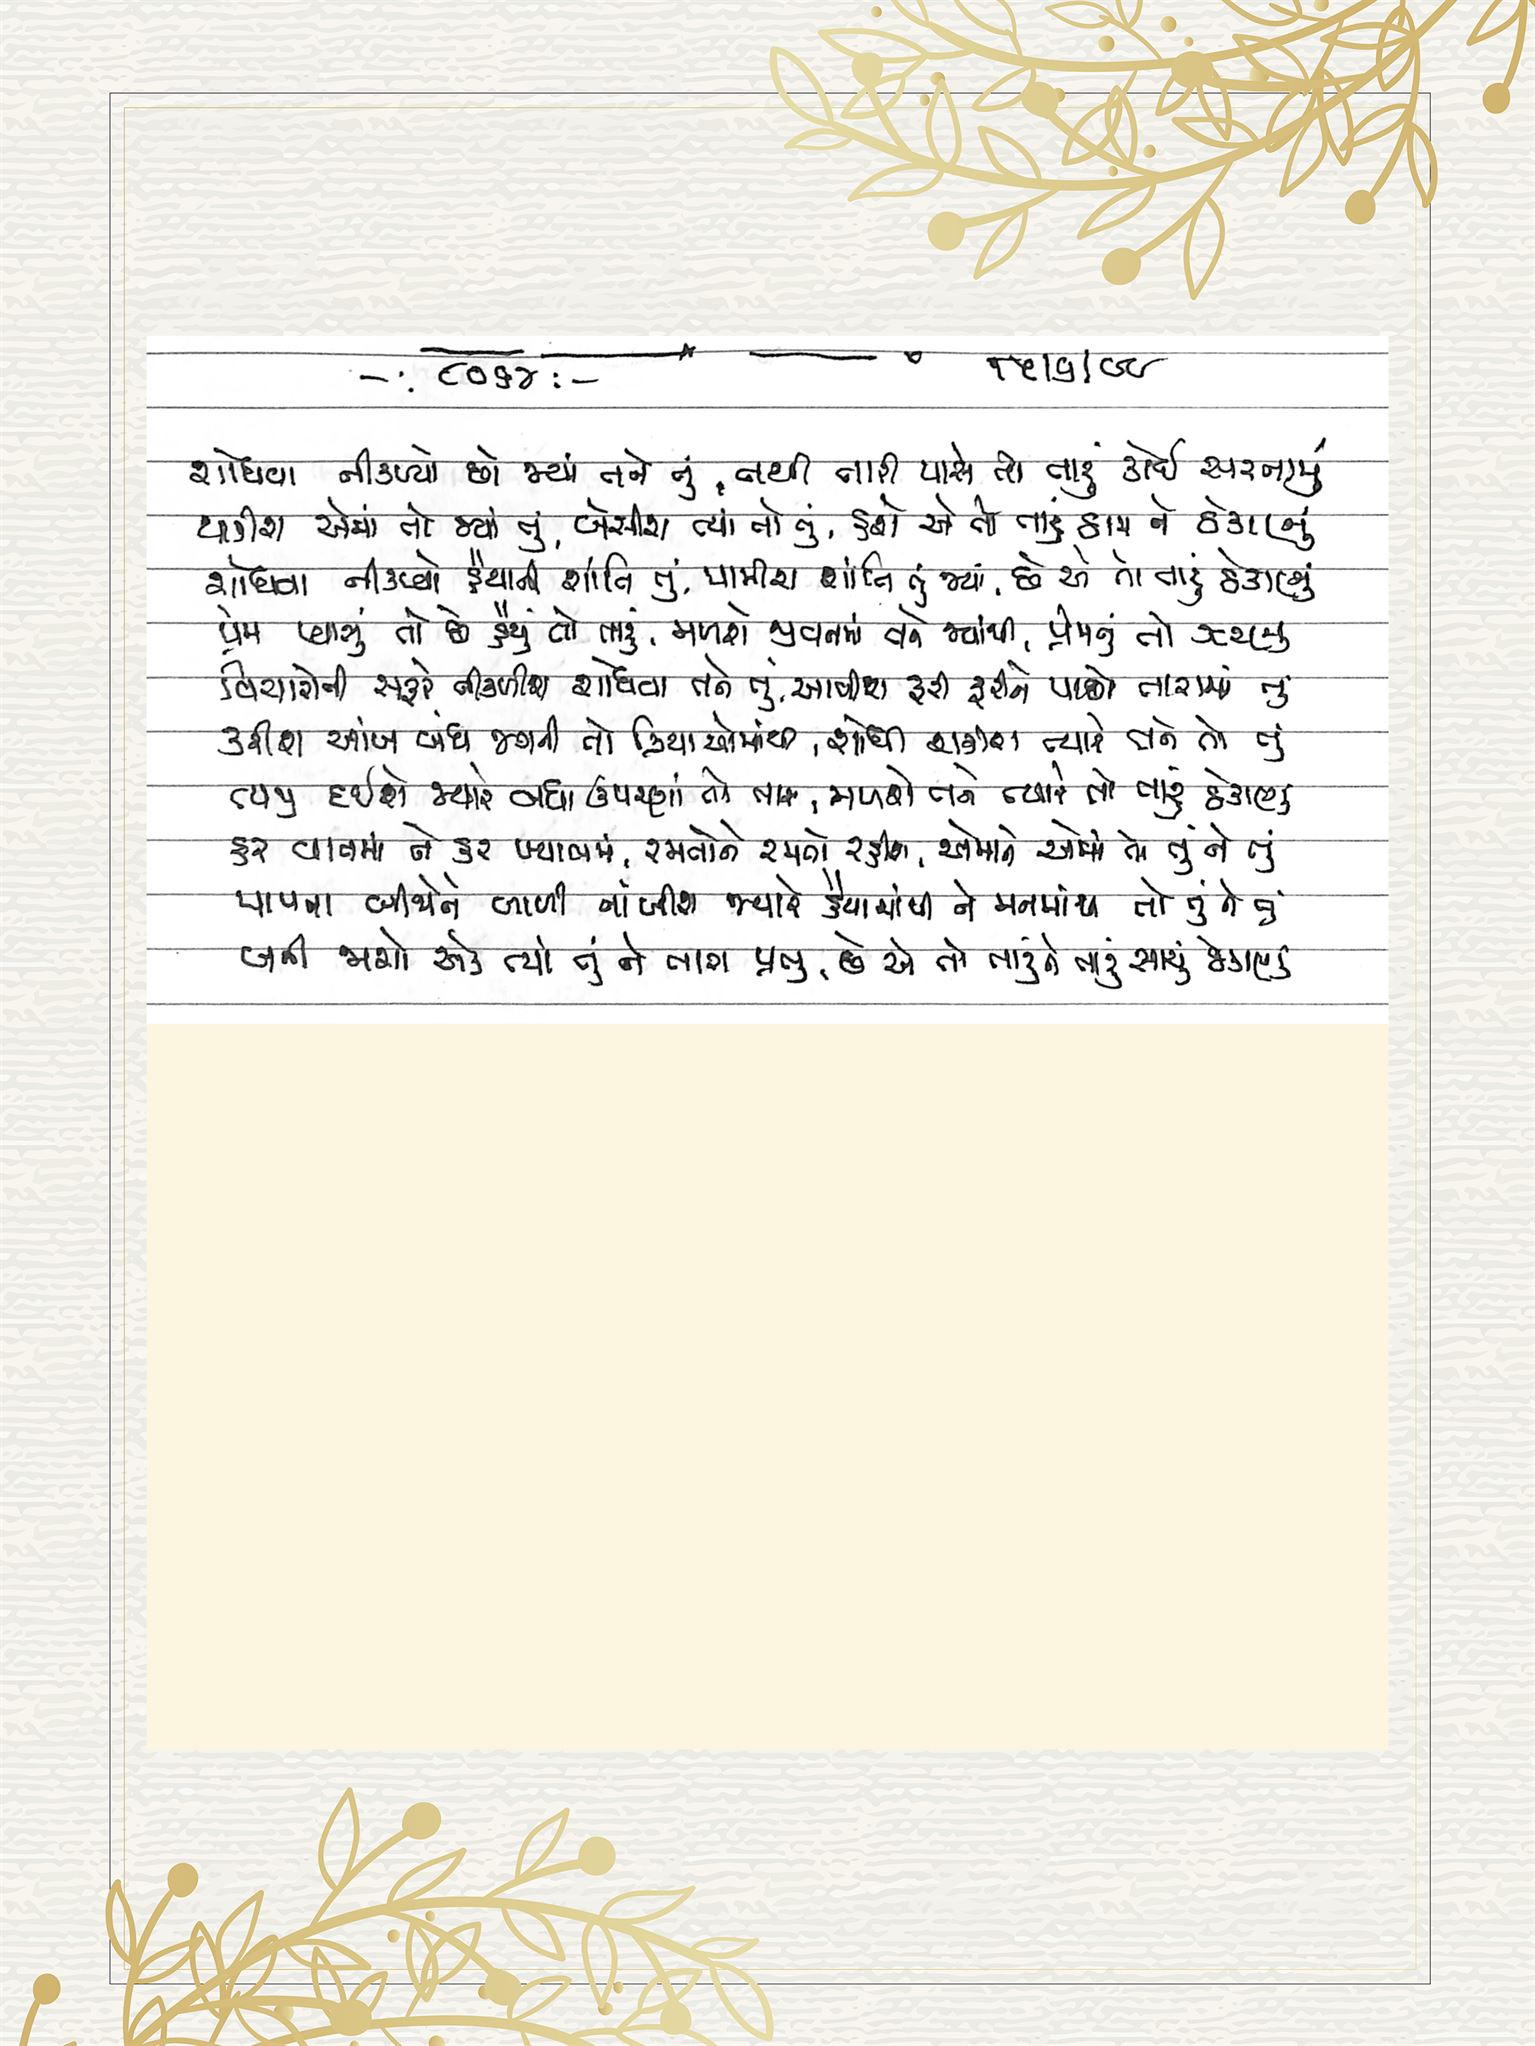 -: ૮૦૬૪ :-
શોધવા નીકળ્યો છો જ્યાં તને તું, નથી તારી પાસે તો તારું કોઈ સરનામું
થાકીશ એમાં તો જ્યાં તું, બેસીશ ત્યાં તો તું, હશે એ તો તારું ઠામ ને ઠેકાણું
શોધવા નીકળ્યો હૈયાની શાંતિ તું, પામીશ શાંતિ તું જ્યાં, છે એ તો તારું ઠેકાણું
પ્રેમ પ્યાસું તો છે હૈયું તો તારું, મળશે જીવનમાં તને જ્યાંથી, પ્રેમનું તો ઝરણું
વિચારોની સફરે નીકળીશ શોધવા તને તું, આવીશ ફરી ફરીને પાછો તારામાં તું
કરીશ આંખ બંધ જગની તો ક્રિયાઓમાંથી, શોધી શકીશ ત્યારે તને તો તું
ત્યજી દઈશે જ્યારે બધા ઉપરણાં તો તારા, મળશે તને ત્યારે તો તારું ઠેકાણું
હર વાતમાં ને હર ખ્યાલમાં, રમતોને રમતો રહીશ, એમાંને એમાં તો તું ને તું
પાપના બીજોને બાળી નાંખીશ જ્યારે હૈયામાંથી ને મનમાંથી તો તું ને તું
બની જાશો એક ત્યાં તું ને તારા પ્રભુ, છે એ તો તારુંને તારું સાચું ઠેકાણું